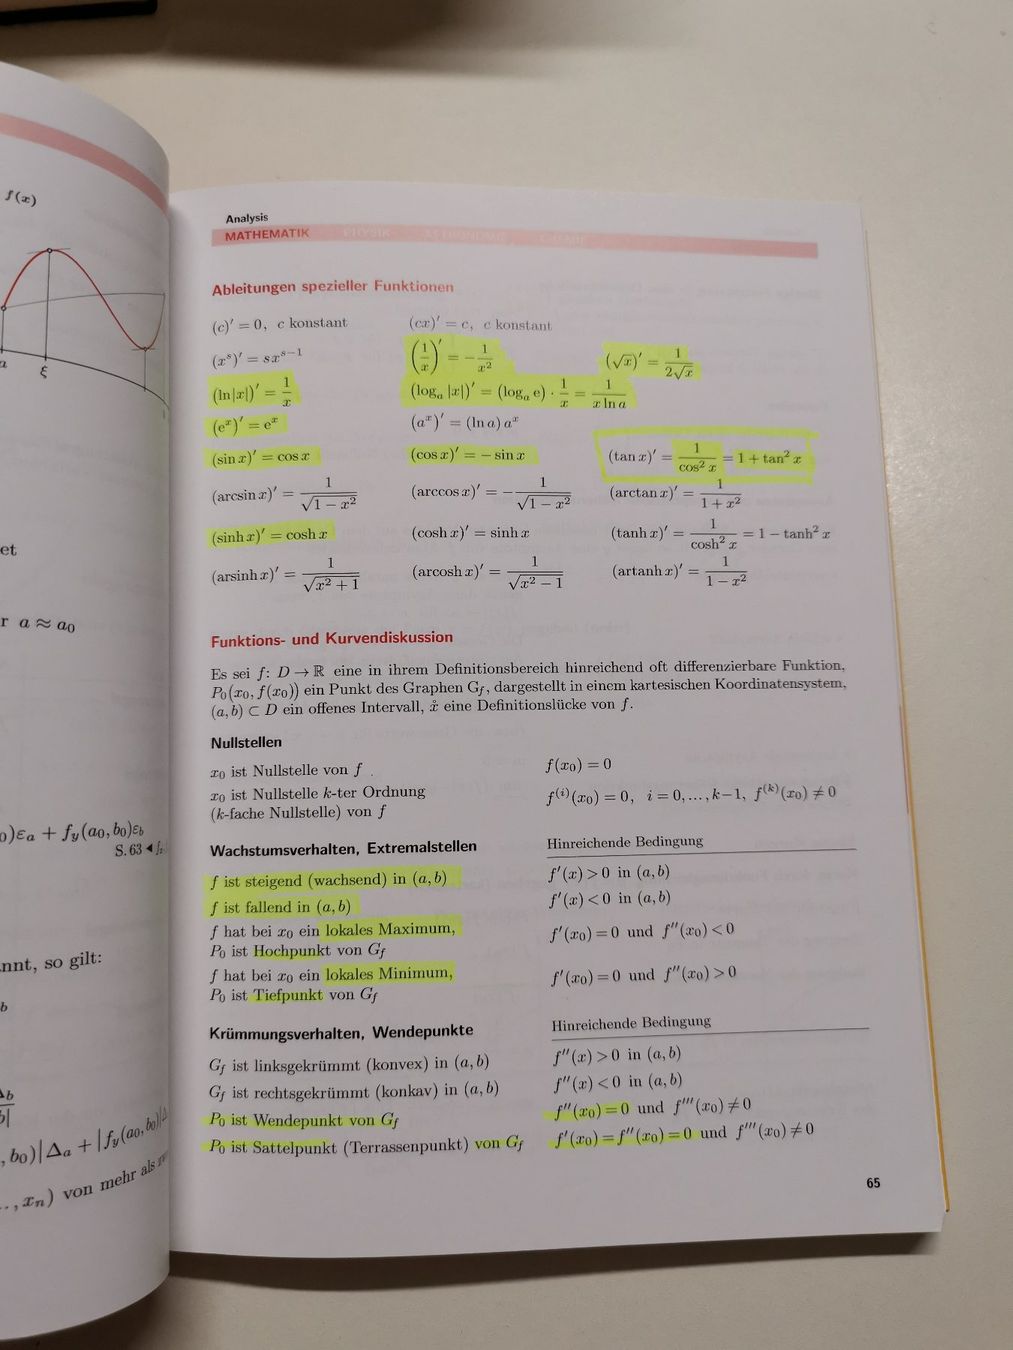 f(x)
a
ξ
et
r a ≈ a₀
₀)εₐ + f_y(a₀, b₀)ε_b
S. 63 ◄
nnt, so gilt:
b
, b₀)|Δₐ + |f_y(a₀, b₀)|
.., xₙ) von mehr als
Analysis
MATHEMATIK PHYSIK ASTRONOMIE CHEMIE
Ableitungen spezieller Funktionen
(c)′ = 0, c konstant (cx)′ = c, c konstant
(xˢ)′ = sxˢ⁻¹ (1/x)′ = −1/x² (√x)′ = 1/(2√x)
(ln|x|)′ = 1/x (logₐ |x|)′ = (logₐ e) · 1/x = 1/(x ln a)
(eˣ)′ = eˣ (aˣ)′ = (ln a) aˣ
(sin x)′ = cos x (cos x)′ = − sin x (tan x)′ = 1/cos² x = 1 + tan² x
(arcsin x)′ = 1/√(1 − x²) (arccos x)′ = −1/√(1 − x²) (arctan x)′ = 1/(1 + x²)
(sinh x)′ = cosh x (cosh x)′ = sinh x (tanh x)′ = 1/cosh² x = 1 − tanh² x
(arsinh x)′ = 1/√(x² + 1) (arcosh x)′ = 1/√(x² − 1) (artanh x)′ = 1/(1 − x²)
Funktions- und Kurvendiskussion
Es sei f: D → ℝ eine in ihrem Definitionsbereich hinreichend oft differenzierbare Funktion,
P₀(x₀, f(x₀)) ein Punkt des Graphen G_f, dargestellt in einem kartesischen Koordinatensystem,
(a, b) ⊂ D ein offenes Intervall, x̊ eine Definitionslücke von f.
Nullstellen
x₀ ist Nullstelle von f f(x₀) = 0
x₀ ist Nullstelle k-ter Ordnung f⁽ⁱ⁾(x₀) = 0, i = 0, …, k−1, f⁽ᵏ⁾(x₀) ≠ 0
(k-fache Nullstelle) von f
Wachstumsverhalten, Extremalstellen Hinreichende Bedingung
f ist steigend (wachsend) in (a, b) f′(x) > 0 in (a, b)
f ist fallend in (a, b) f′(x) < 0 in (a, b)
f hat bei x₀ ein lokales Maximum, f′(x₀) = 0 und f″(x₀) < 0
P₀ ist Hochpunkt von G_f
f hat bei x₀ ein lokales Minimum, f′(x₀) = 0 und f″(x₀) > 0
P₀ ist Tiefpunkt von G_f
Krümmungsverhalten, Wendepunkte Hinreichende Bedingung
G_f ist linksgekrümmt (konvex) in (a, b) f″(x) > 0 in (a, b)
G_f ist rechtsgekrümmt (konkav) in (a, b) f″(x) < 0 in (a, b)
P₀ ist Wendepunkt von G_f f″(x₀) = 0 und f‴(x₀) ≠ 0
P₀ ist Sattelpunkt (Terrassenpunkt) von G_f f′(x₀) = f″(x₀) = 0 und f‴(x₀) ≠ 0
65